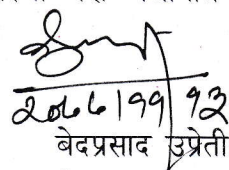 २०७७।११।१३
बेदप्रसाद उप्रेती